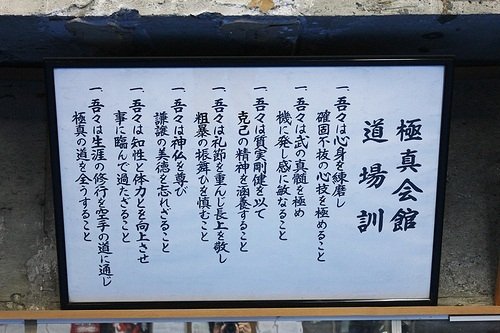 極真会館
道場訓
一、吾々は心身を錬磨し
確固不抜の心技を極めること
一、吾々は武の真髄を極め
機に発し感に敏なること
一、吾々は質実剛健を以て
克己の精神を涵養すること
一、吾々は礼節を重んじ長上を敬し
粗暴の振舞いを慎むこと
一、吾々は神仏を尊び
謙譲の美徳を忘れざること
一、吾々は知性と体力とを向上させ
事に臨んで過たざること
一、吾々は生涯の修行を空手の道に通じ
極真の道を全うすること